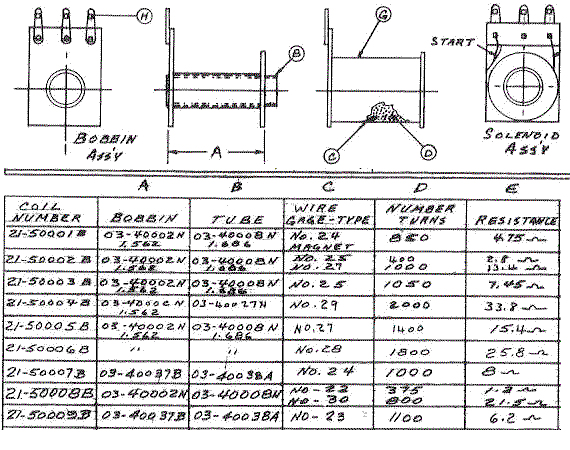 H
B
G
START
BOBBIN
ASS'Y
A
C
D
SOLENOID
ASS'Y
A B C D E
COIL NUMBER BOBBIN TUBE WIRE GAGE-TYPE NUMBER TURNS RESISTANCE
21-50001B 03-40002N 1.562 03-40008N 1.686 NO. 24 MAGNET 850 4.75 Ω
21-50002B 03-40002N 1.562 03-40008N 1.686 NO. 25 400 2.8 Ω
NO. 27 1000 13.4 Ω
21-50003B 03-40002N 1.562 03-40008N 1.686 NO. 25 1050 7.45 Ω
21-50004B 03-40002N 1.562 03-40027N NO. 29 2000 33.8 Ω
21-50005B 03-40002N 1.562 03-40008N 1.686 NO. 27 1400 15.4 Ω
21-50006B " " NO. 28 1800 25.8 Ω
21-50007B 03-40037B 03-40038A NO. 24 1000 8 Ω
21-50008B 03-40002N 03-40008N NO-22 375
NO-30 800 21.5 Ω
03-40037B 03-40038A NO-23 1100 6.2 Ω